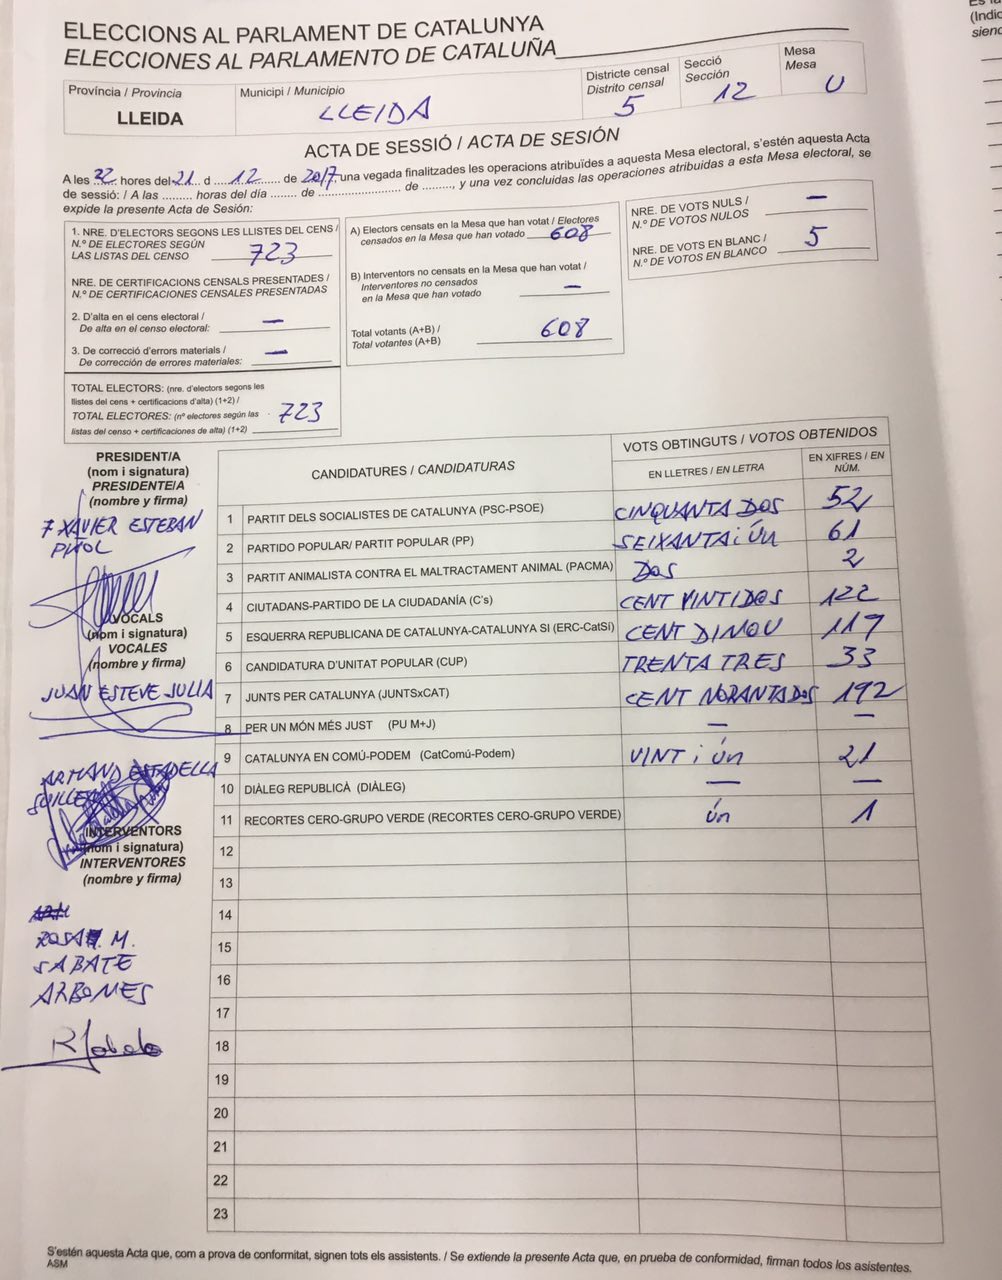 ELECCIONS AL PARLAMENT DE CATALUNYA
ELECCIONES AL PARLAMENTO DE CATALUÑA
Província / Provincia
LLEIDA
Municipi / Municipio
LLEIDA
Districte censal
Distrito censal
5
Secció
Sección
12
Mesa
Mesa
U
ACTA DE SESSIÓ / ACTA DE SESIÓN
A les 22 hores del 21 d 12 de 2017, una vegada finalitzades les operacions atribuïdes a aquesta Mesa electoral, s'estén aquesta Acta
de sessió: / A las ......... horas del día ........ de .............................. de ........, y una vez concluidas las operaciones atribuidas a esta Mesa electoral, se
expide la presente Acta de Sesión:
1. NRE. D'ELECTORS SEGONS LES LLISTES DEL CENS /
N.º DE ELECTORES SEGÚN
LAS LISTAS DEL CENSO 723
NRE. DE CERTIFICACIONS CENSALS PRESENTADES /
N.º DE CERTIFICACIONES CENSALES PRESENTADAS
2. D'alta en el cens electoral /
De alta en el censo electoral: —
3. De correcció d'errors materials /
De corrección de errores materiales: —
TOTAL ELECTORS: (nre. d'electors segons les
llistes del cens + certificacions d'alta) (1+2) /
TOTAL ELECTORES: (nº electores según las
listas del censo + certificaciones de alta) (1+2) 723
A) Electors censats en la Mesa que han votat / Electores
censados en la Mesa que han votado 608
B) Interventors no censats en la Mesa que han votat /
Interventores no censados
en la Mesa que han votado —
Total votants (A+B) /
Total votantes (A+B) 608
NRE. DE VOTS NULS /
N.º DE VOTOS NULOS —
NRE. DE VOTS EN BLANC /
N.º DE VOTOS EN BLANCO 5
PRESIDENT/A
(nom i signatura)
PRESIDENTE/A
(nombre y firma)
XAVIER ESTEBAN
PIÑOL
VOCALS
(nom i signatura)
VOCALES
(nombre y firma)
JUAN ESTEVE JULIA
ARMAND ESTADELLA
GUILLEM
INTERVENTORS
(nom i signatura)
INTERVENTORES
(nombre y firma)
ROSA M.
SABATE
ARBONES
CANDIDATURES / CANDIDATURAS
VOTS OBTINGUTS / VOTOS OBTENIDOS
EN LLETRES / EN LETRA
EN XIFRES / EN
NÚM.
1 PARTIT DELS SOCIALISTES DE CATALUNYA (PSC-PSOE) CINQUANTA DOS 52
2 PARTIDO POPULAR/ PARTIT POPULAR (PP) SEIXANTA i Ún 61
3 PARTIT ANIMALISTA CONTRA EL MALTRACTAMENT ANIMAL (PACMA) DOS 2
4 CIUTADANS-PARTIDO DE LA CIUDADANÍA (C's) CENT VINTIDOS 122
5 ESQUERRA REPUBLICANA DE CATALUNYA-CATALUNYA SI (ERC-CatSí) CENT DINOU 119
6 CANDIDATURA D'UNITAT POPULAR (CUP) TRENTA TRES 33
7 JUNTS PER CATALUNYA (JUNTSxCAT) CENT NORANTADOS 192
8 PER UN MÓN MÉS JUST (PU M+J) — —
9 CATALUNYA EN COMÚ-PODEM (CatComú-Podem) VINT i Ún 21
10 DIÀLEG REPUBLICÀ (DIÀLEG) — —
11 RECORTES CERO-GRUPO VERDE (RECORTES CERO-GRUPO VERDE) Ún 1
12
13
14
15
16
17
18
19
20
21
22
23
S'estén aquesta Acta que, com a prova de conformitat, signen tots els assistents. / Se extiende la presente Acta que, en prueba de conformidad, firman todos los asistentes.
ASM
(Indic